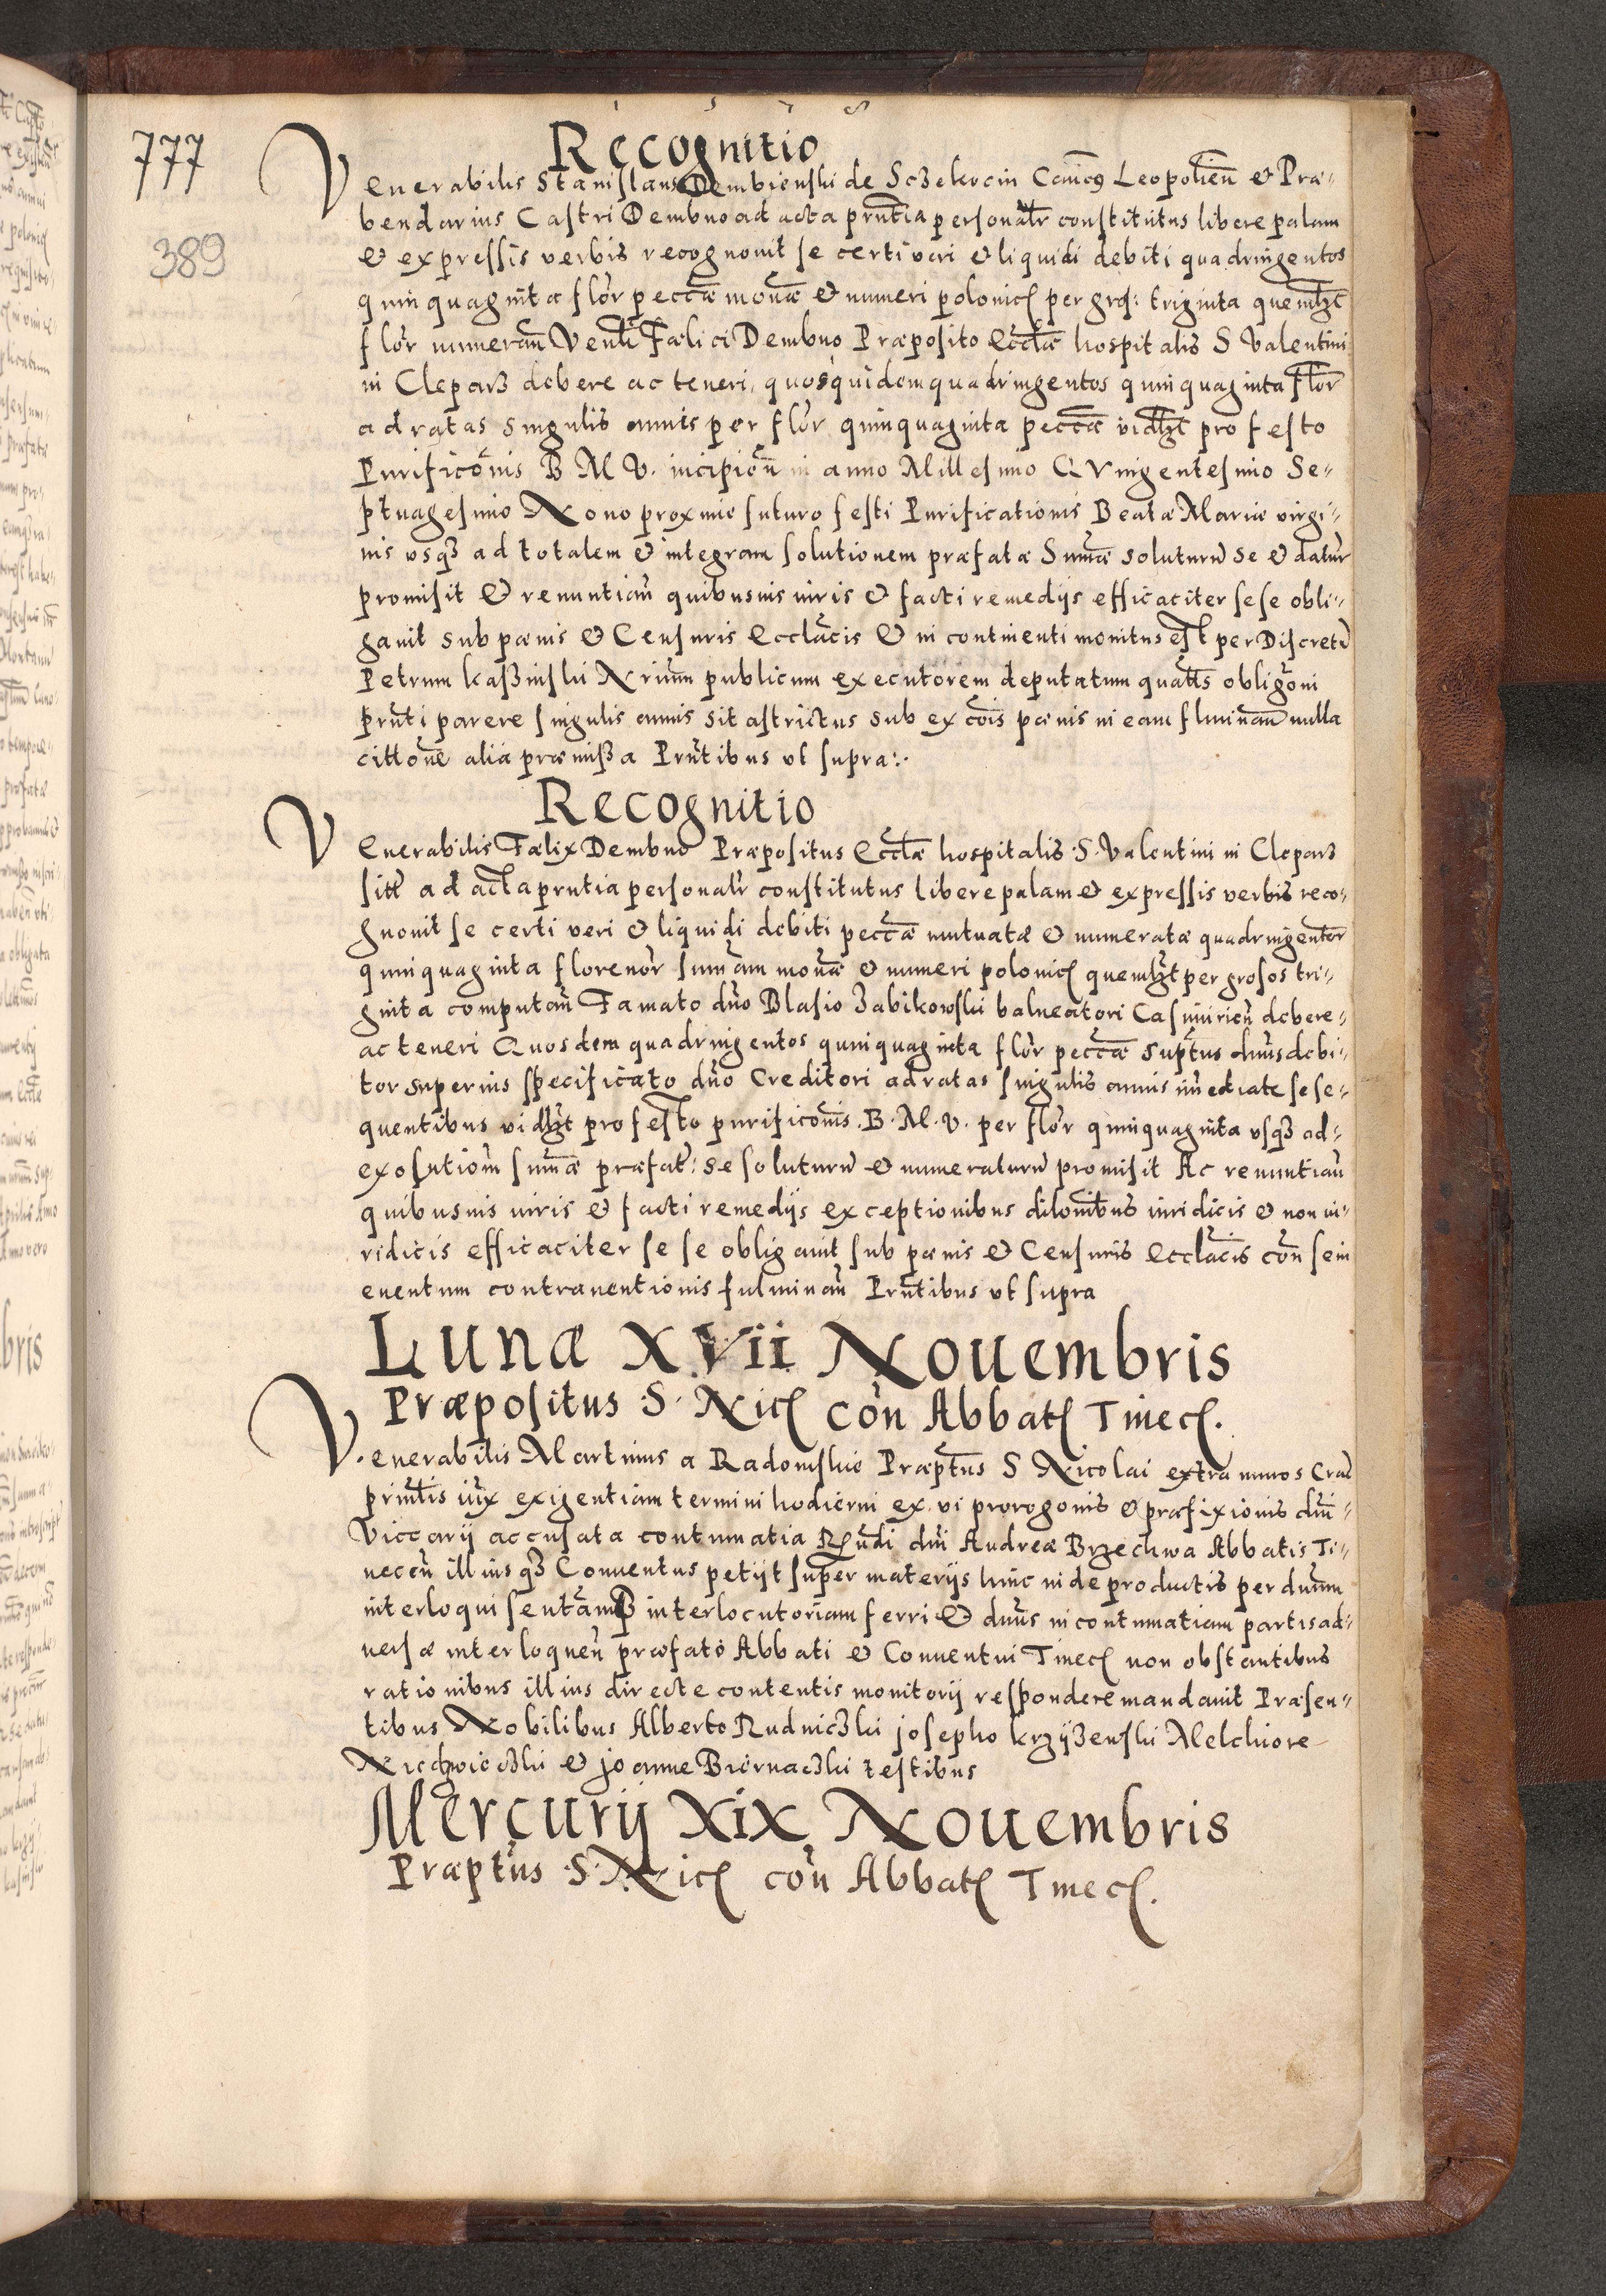 1 5 7 8
777
389
Recognitio
Venerabilis Stanislaus Dembienski de Sczekocin Canicus Leopolien et Præ-
bendarius Castri Dembno ad acta prntia personalr constitutus libere palam
et expressis verbis recognouit se certi veri et liquidi debiti quadringentos
quinquaginta flor peccæ monæ et numeri polonic per gros: triginta quemlzt
flor numeran Venli Fælici Dembno Præposito Ecclæ hospitalis S Valentini
in Cleparz debere ac teneri, quosquidem quadringentos quinquaginta flor
ad ratas singulis annis per flor quinquaginta peccæ vidlzt pro festo
Purificonis B M V. incipien in anno Millesimo QVingentesimo Se-
ptuagesimo Nono proxime futuro festi Purificationis Beatæ Mariæ virgi-
nis vsqz ad totalem et integram solutionem præfatæ Summæ soluturum se et datur
promisit et renuntian quibusuis iuris et facti remedijs efficaciter sese obli-
gauit sub pænis et Censuris Ecclacis et in continenti monitus est per Discretum
Petrum kaßinski Nrium publicum executorem deputatum quatts obligoni
prnti parere singulis annis sit astrictus sub excois pænis in eam fluminan nulla
cittone alia præmißa Prntibus vt supra:.
Recognitio
Venerabilis Fælix Dembno Præpositus Ecclæ hospitalis S. Valentini in Cleparz
sitt ad acta prntia personalr constitutus libere palam et expressis verbis reco-
gnouit se certi veri et liquidi debiti peccæ mutuatæ et numeratæ quadringentor
quinquaginta florenor summam monæ et numeri polonic quemlzt per grosos tri-
ginta computan Famato dno Blasio Zabikowski balneatori Casimirien debere
ac teneri Quosdem quadringentos quinquaginta flor peccæ suptus dnus debi-
tor superius specificato dno Creditori ad ratas singulis annis immediate sese-
quentibus vidlzt pro festo purificonis B. M. V. per flor quinquaginta vsqz ad
exosutiom summæ præfat: se soluturum et numeraturum promisit Ac renuntian
quibusuis iuris et facti remedijs exceptionibus dilonibus iuridicis et non iu-
ridicis efficaciter sese obligauit sub pænis et Censuris Ecclacis con se in
euentum contrauentionis fulminan Prntibus vt supra
Lunæ XVii Nouembris
Præpositus S. Nic con Abbat Tinec.
Venerabilis Martinus a Radomsko Præptus S Nicolai extra muros Crac
printis iux exigentiam termini hodierni ex vi prorogonis et præfixionis dni
Viccarij accusata contumatia Rndi dni Andreæ Brzechwa Abbatis Ti-
necen illiusqz Conuentus petijt super materijs hinc inde productis per dnum
interloqui sentamqz interlocutoriam ferri et dnus in contumatiam partis ad-
uersæ interloquen præfato Abbati et Conuentui Tinec non obstantibus
rationibus illius directe contentis monitorij respondere mandauit Præsen-
tibus Nobilibus Alberto Rudniczki Josepho krzyzenski Melchiore
et Joanne Biernaczki testibus
Mercurij XiX Nouembris
Præptus S. Nic con Abbat Tinec.